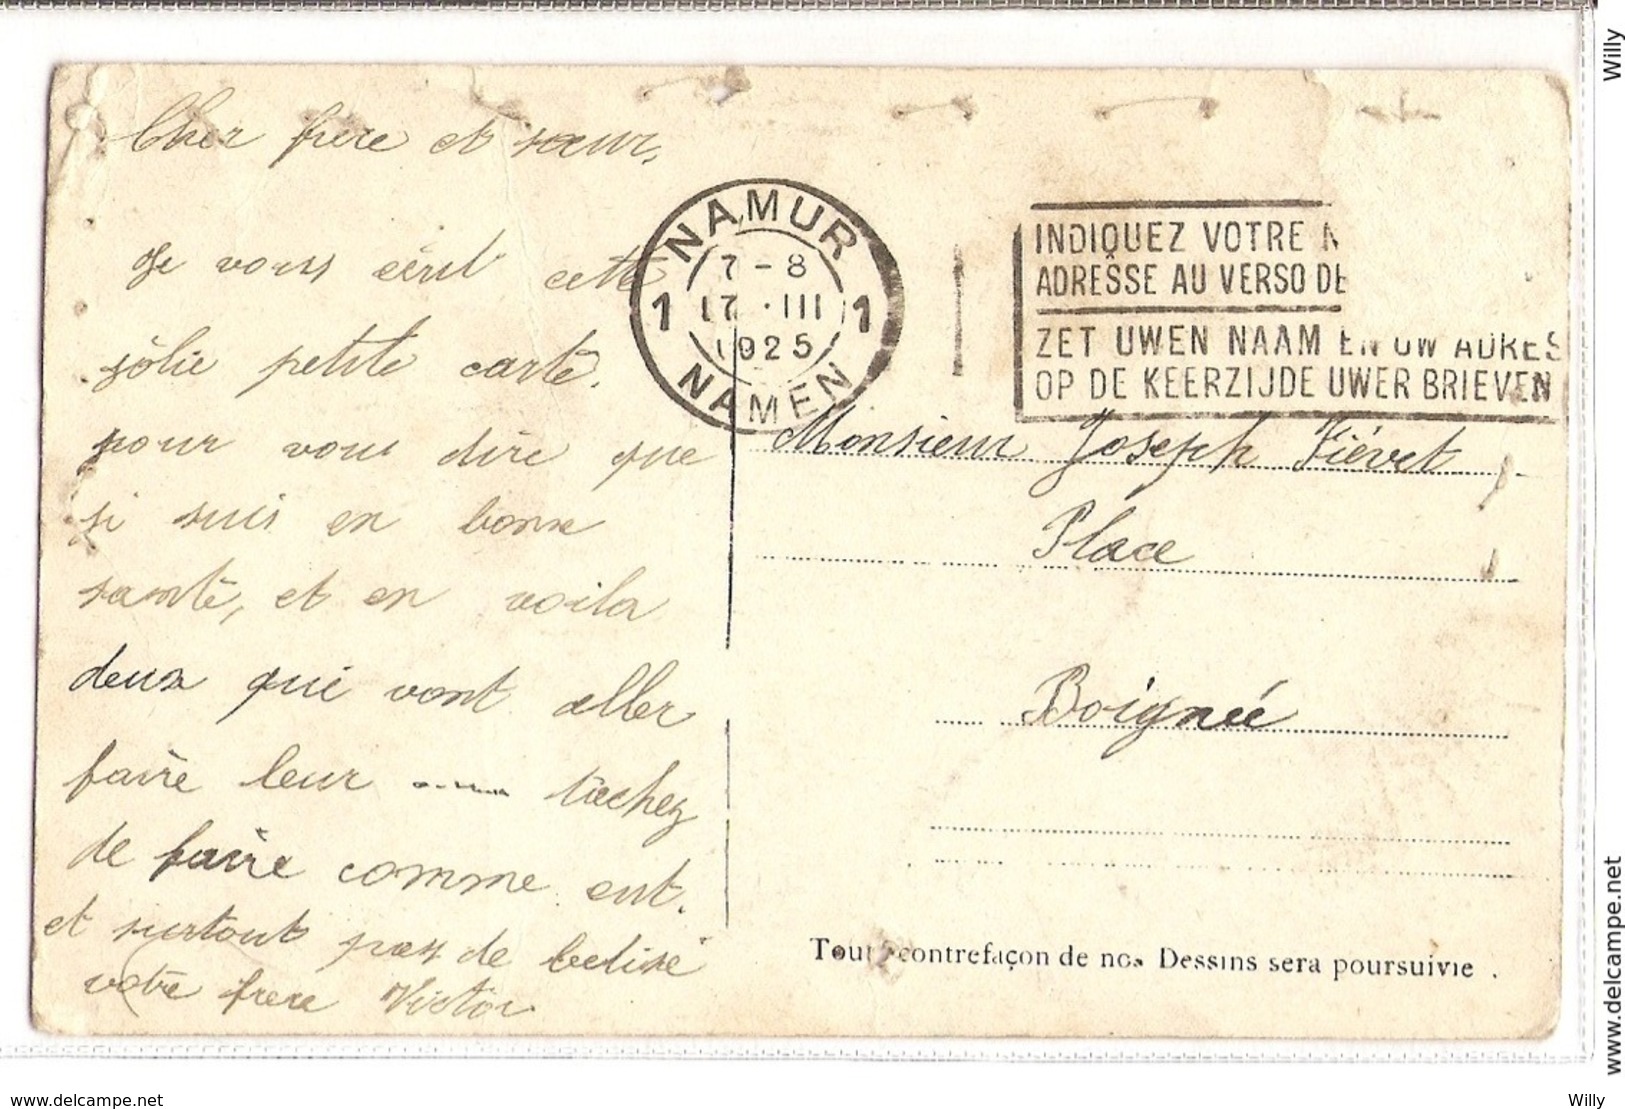 Cher frère et sœur,
Je vous écrit cette
jolie petite carte.
pour vous dire que
si suis en bonne
santé, et en voila
deux qui vont aller
faire leur ...... tâchez
de faire comme eut.
et surtout pas de betise
votre frere Victor
NAMUR
7-8
1 17 · III 1
1925
NAMEN
INDIQUEZ VOTRE N
ADRESSE AU VERSO DE
ZET UWEN NAAM EN UW ADRES
OP DE KEERZIJDE UWER BRIEVEN
Monsieur Joseph Fiévet
Place
Boignée
Tout contrefaçon de nos Dessins sera poursuivie .
Willy
www.delcampe.net
www.delcampe.net
Willy